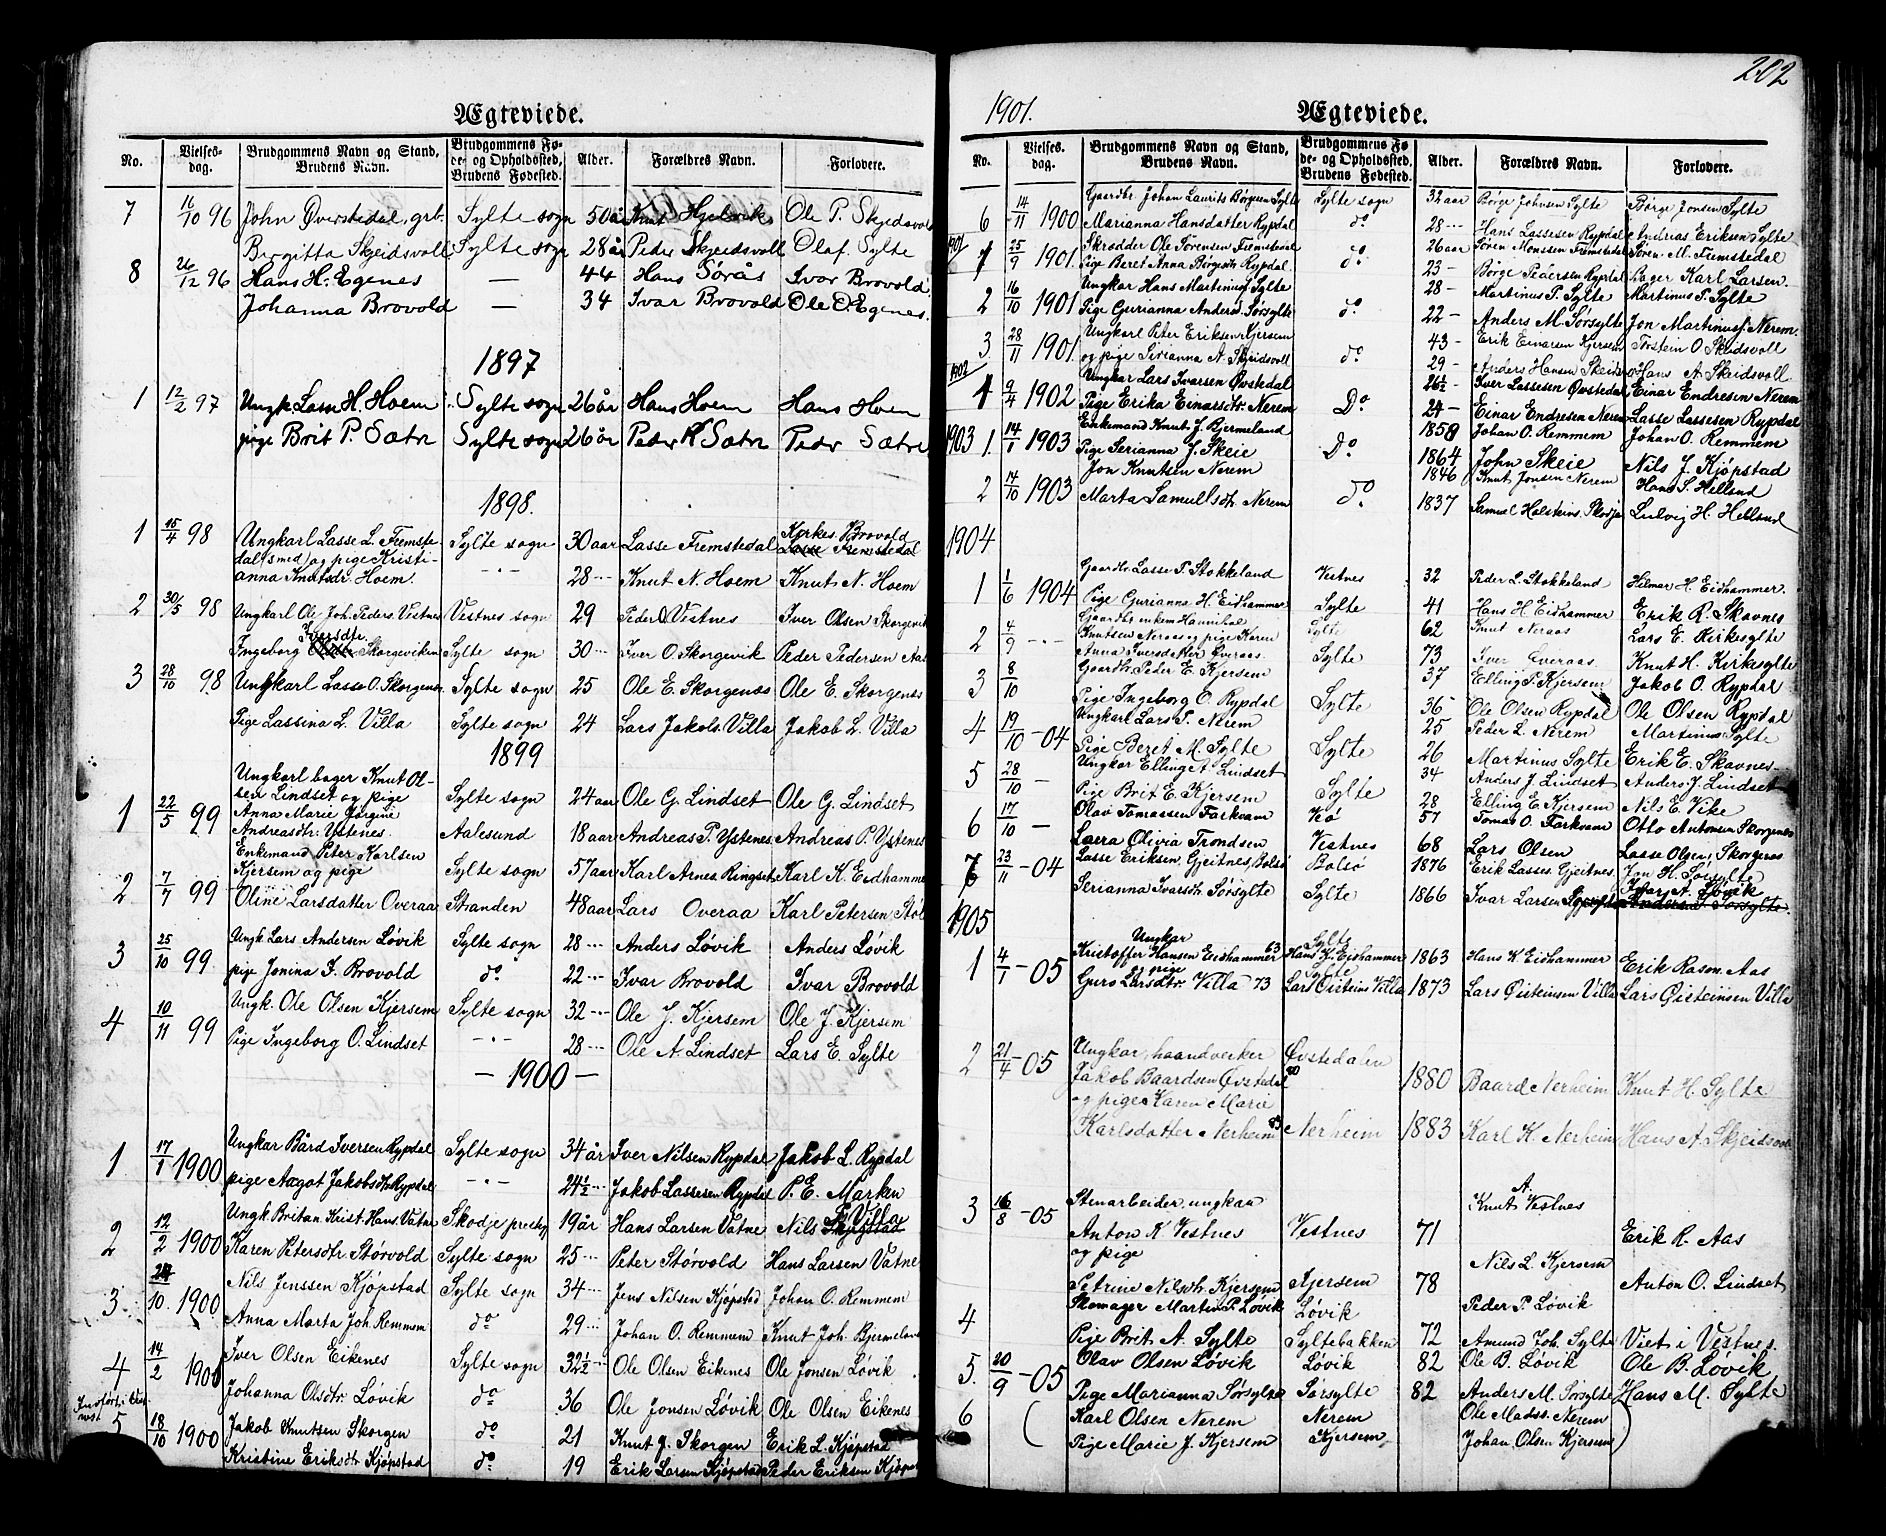 202
Ægteviede.
No. Vielses-dag. Brudgommens Navn og Stand, Brudens Navn. Brudgommens Fø-de- og Opholdssted, Brudens Fødested. Alder. Forældres Navn. Forlovere.
7 16/10 96 John Øverstedal, grb. Sylte sogn 50 år Knut Hjelviks Ole P. Skjeidsvoll
Birgitta Skjeidsvoll Sylte sogn 28 år Peder Skjeidsvoll Olaf Sylte
8 26/12 96 Hans H. Egenes — 44 Hans Sørås Ivar Brovold
Johanna Brovold — 34 Ivar Brovold Ole O. Egenes.
1897
1 12/2 97 Ungk Lasse H. Hoem Sylte sogn 26 år Hans Hoem Hans Hoem
pige Brit P. Sætre Sylte sogn 26 år Peder K Sætre Peder Sætre
1898.
1 15/4 98 Ungkarl Lasse L. Fremste- Sylte sogn 30 aar Lasse Fremstedal Kyrkes. Brovold
Lasse Fremstedal
dal (smed) og pige Kristi-
anna Knutsdr. Hoem. -·- 28 --- Knut N. Hoem Knut N. Hoem
2 30/5 98 Ungkarl Ole Joh. Peders. Vestnes Vestnes sogn 29 Peder Vestnes Iver Olsen Skorgevik
Iversdtr.
Ingeborg Skorgeviken Sylte sogn 30 --- Iver O. Skorgevik Peder Pedersen Aas
3 28/10 98 Ungkarl Lasse O. Skorgenes Sylte sogn 25 Ole E. Skorgenæs Ole E. Skorgenæs
Pige Lassina L. Villa Sylte sogn 24 Lars Jakols. Villa Jakob L. Villa
1899
Ungkarl bager Knut Ol-
1 22/5 99 sen Lindset og pige Sylte sogn 24 aar Ole G. Lindset Ole G. Lindset
Anna Marie Jørgine
Andreasdtr. Ystenes Aalesund 18 aar Andreas P. Ystenes Andreas P. Ystenes
Enkemand Peter Karlsen
2 7/7 99 Kjersem og pige Sylte sogn 57 aar Karl Arnes. Ringset Karl K. Eidhammer
Oline Larsdatter Overaa Stranden 48 aar Lars Overaa Karl Petersen Støl
3 25/10 99 Ungk Lars Andersen Løvik Sylte sogn 28 --- Anders Løvik Anders Løvik
pige Jonina I. Brovold do 22 --- Ivar Brovold Ivar Brovold
4 10/11 99 Ungk. Ole Olsen Kjersem Sylte sogn 32 --- Ole J. Kjersem Ole J. Kjersem
Pige Ingeborg O. Lindset -·- 28 --- Ole A. Lindset Lars E. Sylte
— 1900 —
1 17/1 1900 Ungkar Bård Iversen Rypdal Sylte sogn 34 år Iver Nilsen Rypdal Jakob L. Rypdal
pige Aagot Jakobsdtr Rypdal -·- 24½ --- Jakob Lassesen Rypdal P. E. Marken
2 12/2 1900 Ungk. Britan Krist. Hans. Vatne Skodje prestgj 19 år Hans Larsen Vatne Nils E. Villa
Karen Petersdtr. Størvold Sylte sogn 25 --- Peter Størvold Hans Larsen Vatne
3 24/10 1900 Nils Jenssen Kjøpstad Sylte sogn 34 --- Jens Nilsen Kjøpstad Johan O. Remmem
Anna Marta Joh. Remmem do 29 --- Johan O. Remmem Knut Joh. Bjermeland
4 14/2 1901 Iver Olsen Eikenes Sylte sogn 32½ --- Ole Olsen Eikenes Ole Jonsen Løvik
Johanna Olsdtr. Løvik do 36 Ole Jonsen Løvik Ole Olsen Eikenes
5 18/10 1900 Jakob Knutsen Skorgen do 21 Knut J. Skorgen Erik L. Kjøpstad
Kristine Eriksdtr Kjøpstad do 19 Erik Larsen Kjøpstad Peder Eriksen Kjøpst
1901.
Ægteviede.
No. Vielses-dag. Brudgommens Navn og Stand, Brudens Navn. Brudgommens Fø-de- og Opholdssted, Brudens Fødested. Alder. Forældres Navn. Forlovere.
6 14/11 1900 Gaardbr. Johan Laurits Børgesen Sylte Sylte sogn 32 aar Børge Johnsen Sylte Børge Jonsen Sylte
Marianna Hansdatter Rypdal do 28 --- Hans Lassesen Rypdal Andreas Eriksen Sylte
1901
1 25/9 1901 Skrædder Ole Sørensen Fremstedal do 26 aar Søren Monssen Fremstedal Søren M. Fremstedal
Pige Beret Anna Børgesdtr Rypdal. 23 - Børge Pedersen Rypdal Bager Karl Larsen
2 16/10 1901 Ungkar Hans Martinus Sylte do 28 - Martinus P. Sylte Martinus P. Sylte
Pige Gurianna Anders. Sørsylte 22 - Anders M. Sørsylte Jon Martinus. Nerem.
3 28/11 1901 Ungkarl Peter Eriksen Kjersem do 43 - Erik Einarsen Kjersem Torstein O. Skeidsvoll
og pige Serianna A. Skeidsvoll 29 - Anders Hansen Skeidsv Hans A. Skeidsvoll.
1902
1 9/4 1902 Ungkar Lars Ivarsen Øvstedal Do 26½ - Iver Lassesen Øvstedal Einar Endresen Nerem
Pige Erika Einarsdtr. Nerem 24 - Einar Endresen Nerem Lasse Lassesen Rypdal
1903 1. 14/1 1903 Enkemand Knut J. Bjermeland Do 1859 Johan O. Remmem Johan O. Remmem
Pige Serianna J. Skeie 1864 John Skeie Nils J. Kjøpstad
2 14/10 1903 Jon Knutsen Nerem do 1846 Knut Jonsen Nerem Hans S. Helland
Marta Samuelsdtr. Nerem 1837 Samuel Halsteins. Skodje Ludvig H. Helland
1904
1 1/6 1904 Gaardbr Lasse P. Stokkeland Vestnes 32 Peder L. Stokkeland Hilmar H. Eidhammer.
Pige Gurianna H. Eidhammer Sylte 41 Hans H. Eidhammer Erik R. Skavnes
2 4/9 -·- Gaardbr enkem Hannibal
Knutsen Neraas og pige Karen Sylte 62 Knut Neraas Lars E. Kirkesylte
Anna Iversdatter Øveraas Sylte 73 Iver Øveraas Knut H. Kirkesylte
3 8/10 Gaardbr. Peder E. Kjersem 37 Elling P. Kjersem Jakob O. Rypdal
Pige Ingeborg O. Rypdal Sylte 36 - Ole Olsen Rypdal Ole Olsen Rypdal
4 19/10 -04 Ungkarl Lars P. Nerem 25 Peder L. Nerem Martinus Sylte
Pige Beret M. Sylte Sylte 26 Martinus Sylte Erik E. Skavnes
5 28/10 - Ungkar Elling A. Lindset 34 Anders J. Lindset Anders J. Lindset
Pige Brit E. Kjersem Sylte 28 Elling E. Kjersem Nils E. Vike
6 17/10 - Olav Tomassen Farkvam Veø 57 Tomas O. Farkvam Otto Antonsen Skorgenes
Laera Olivia Trondsen Vestnes 68 Lars Olsen Lasse Olsen Skorgenes
7 23/11 -04 Lasse Eriksen Gjeitnes, Bolsø Bolsø 1876 Erik Lasses. Gjeitnes Jon H. Sørsylte
Serianna Ivarsdtr Sørsylte Sylte 1866 Ivar Larsen Sørsylte Ivar A. Løvik
Anders Sørsylte.
1905
1 4/1 -05 Ungkar Sylte
Kristoffer Hansen Eidhammer 63 Hans K. Eidhammer 1863 Hans K Eidhammer Erik Rasm. Aas
og pige Sylte
Guro Larsdtr. Villa -73 Lars Øisteins Villa 1873 Lars Øisteinsen Villa Lars Øisteinsen Villa
2 21/4 -05 Ungkar, haandverker Øvstedalen
Jakob Baardsen Øvstedal 80 1880 Baard Nerheim Knut H. Sylte
og pige Karen Marie
Karlsdatter Nerheim 83 Nerheim 1883 Karl K. Nerheim Hans A. Skjeidsvoll
3 16/8 -05 Stenarbeider, ungkar A.
Knut Vestnes
Anton K. Vestnes Vestnes 71 Erik R. Aas
og pige
Nils L. Kjersem
Petrine Nilsdtr. Kjersem Kjersem 78 Anton O. Lindset
4 Skomager Martin P. Løvik Løvik Peder P. Løvik
Pige Brit A. Sylte Syltebakken 72 Amund Joh. Sylte Viet i Vestnes.
5. 20/9 -05 Olav Olsen Løvik Løvik 82 Ole B. Løvik Ole B. Løvik
Pige Marianna Sørsylte Sørsylte 82 Anders M. Sørsylte Hans M. Sylte
6 ( Karl Olsen Nerem Nerem Ole Madss. Nerem )
Pige Marie J. Kjersem Kjersem Johan Olsen Kjersem